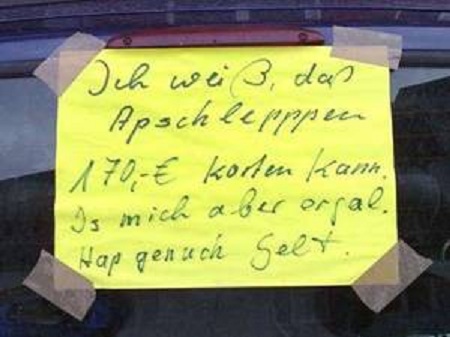 Ich weiß, daß
Apschlepppen
170,-€ kosten kann.
Is mich aber orgal.
Hap genuch Gelt.